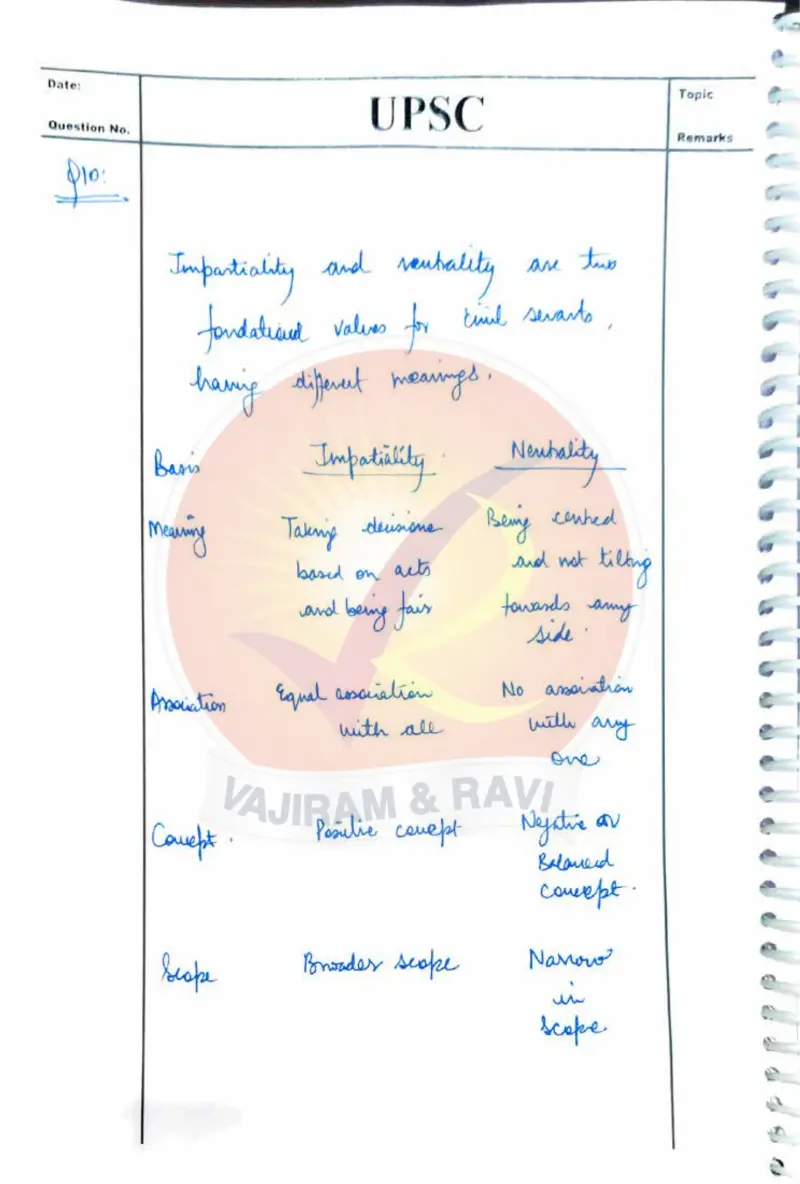 Date:
Question No.
UPSC
Topic
Remarks
Q10:
Impartiality and neutrality are two
fondational values for civil servants,
having different meanings.
Basis Impatiality Neutrality
Meaning Taking decisions Being centred
based on acts and not tilting
and being fair towards any
side.
Association Equal association No association
with all with any
one
VAJIRAM & RAVI
Concept. Positive concept Negative or
Balanced
concept.
Scope Broader scope Narrow
in
scope.